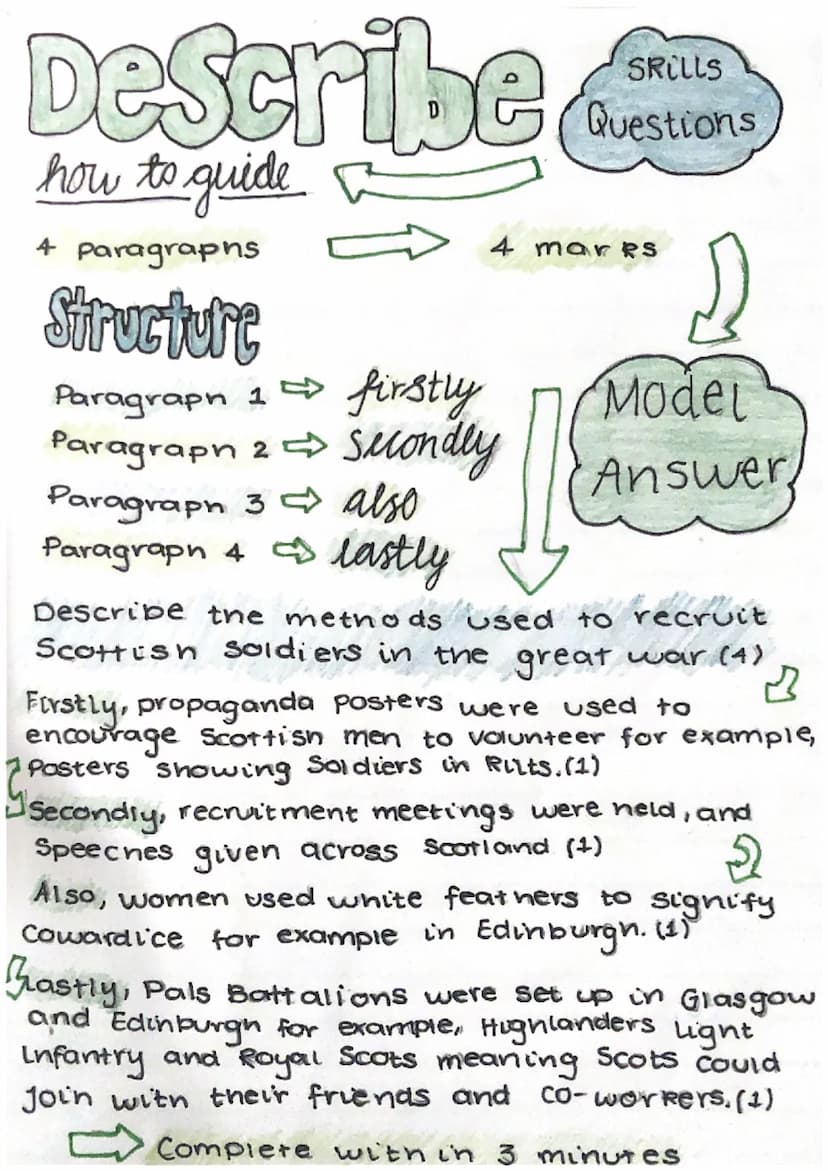 Describe
SKILLS
Questions
how to guide
4 paragraphs
4 marks
Structure
Paragraph 1 firstly
Paragraph 2 secondly
Paragraph 3 also
Paragraph 4 lastly
Model
Answer
Describe the methods used to recruit
Scottish soldiers in the great war (4)
Firstly, propaganda posters were used to
encourage Scottish men to volunteer for example,
Posters showing Soldiers in Kilts. (1)
Secondly, recruitment meetings were held, and
Speeches given across Scotland (1)
Also, women used white feathers to signify
cowardice for example in Edinburgh. (1)
Lastly, Pals Battalions were set up in Glasgow
and Edinburgh for example, Highlanders Light
Infantry and Royal Scots meaning Scots could
Join with their friends and co-workers. (1)
Complete within 3 minutes